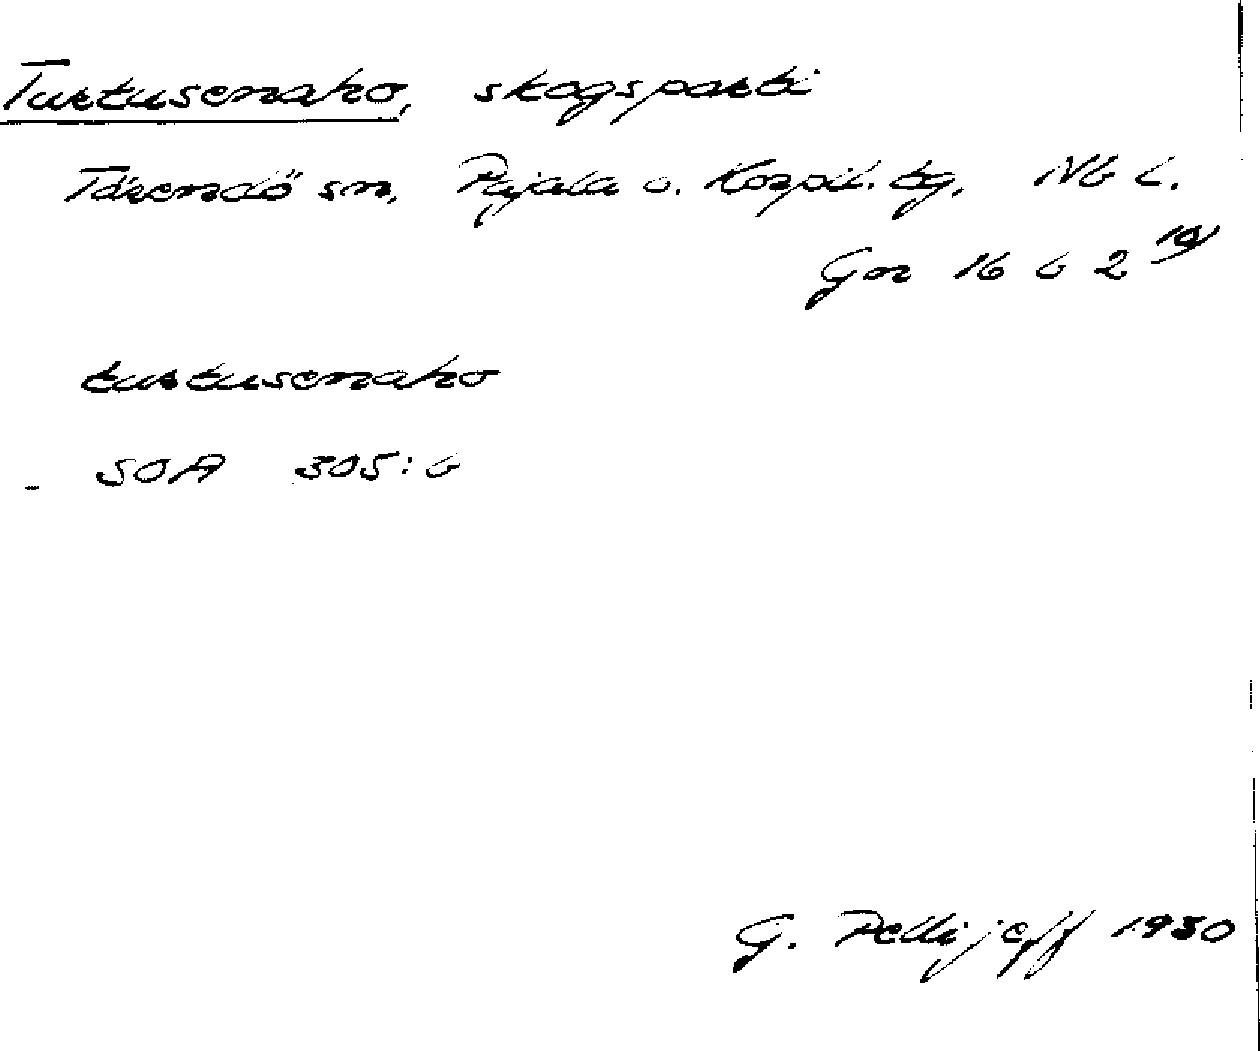 Turtusenaho, skogsparti
Tärendö sn, Pajala o. Korpil. tg, Nb L.
Gor 16 b 2 19/
turtusenaho
SOA 305:6
G. Pellijeff 1930